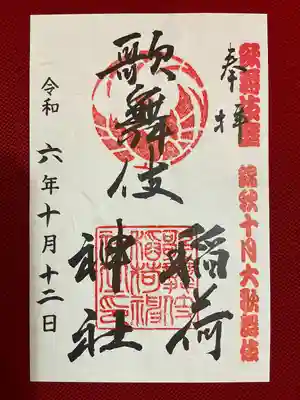 歌舞伎座 錦秋十月大歌舞伎
奉拝
歌舞伎
稲荷
神社
令和六年十月十二日